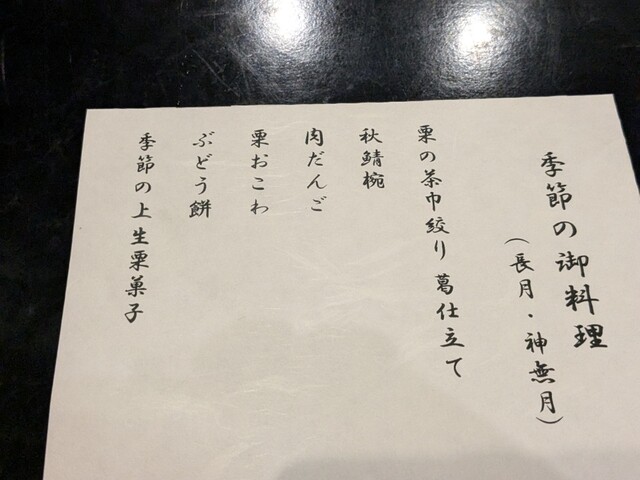 季節の御料理
(長月・神無月)
栗の茶巾絞り 葛仕立て
秋鯖椀
肉だんご
栗おこわ
ぶどう餅
季節の上生栗菓子